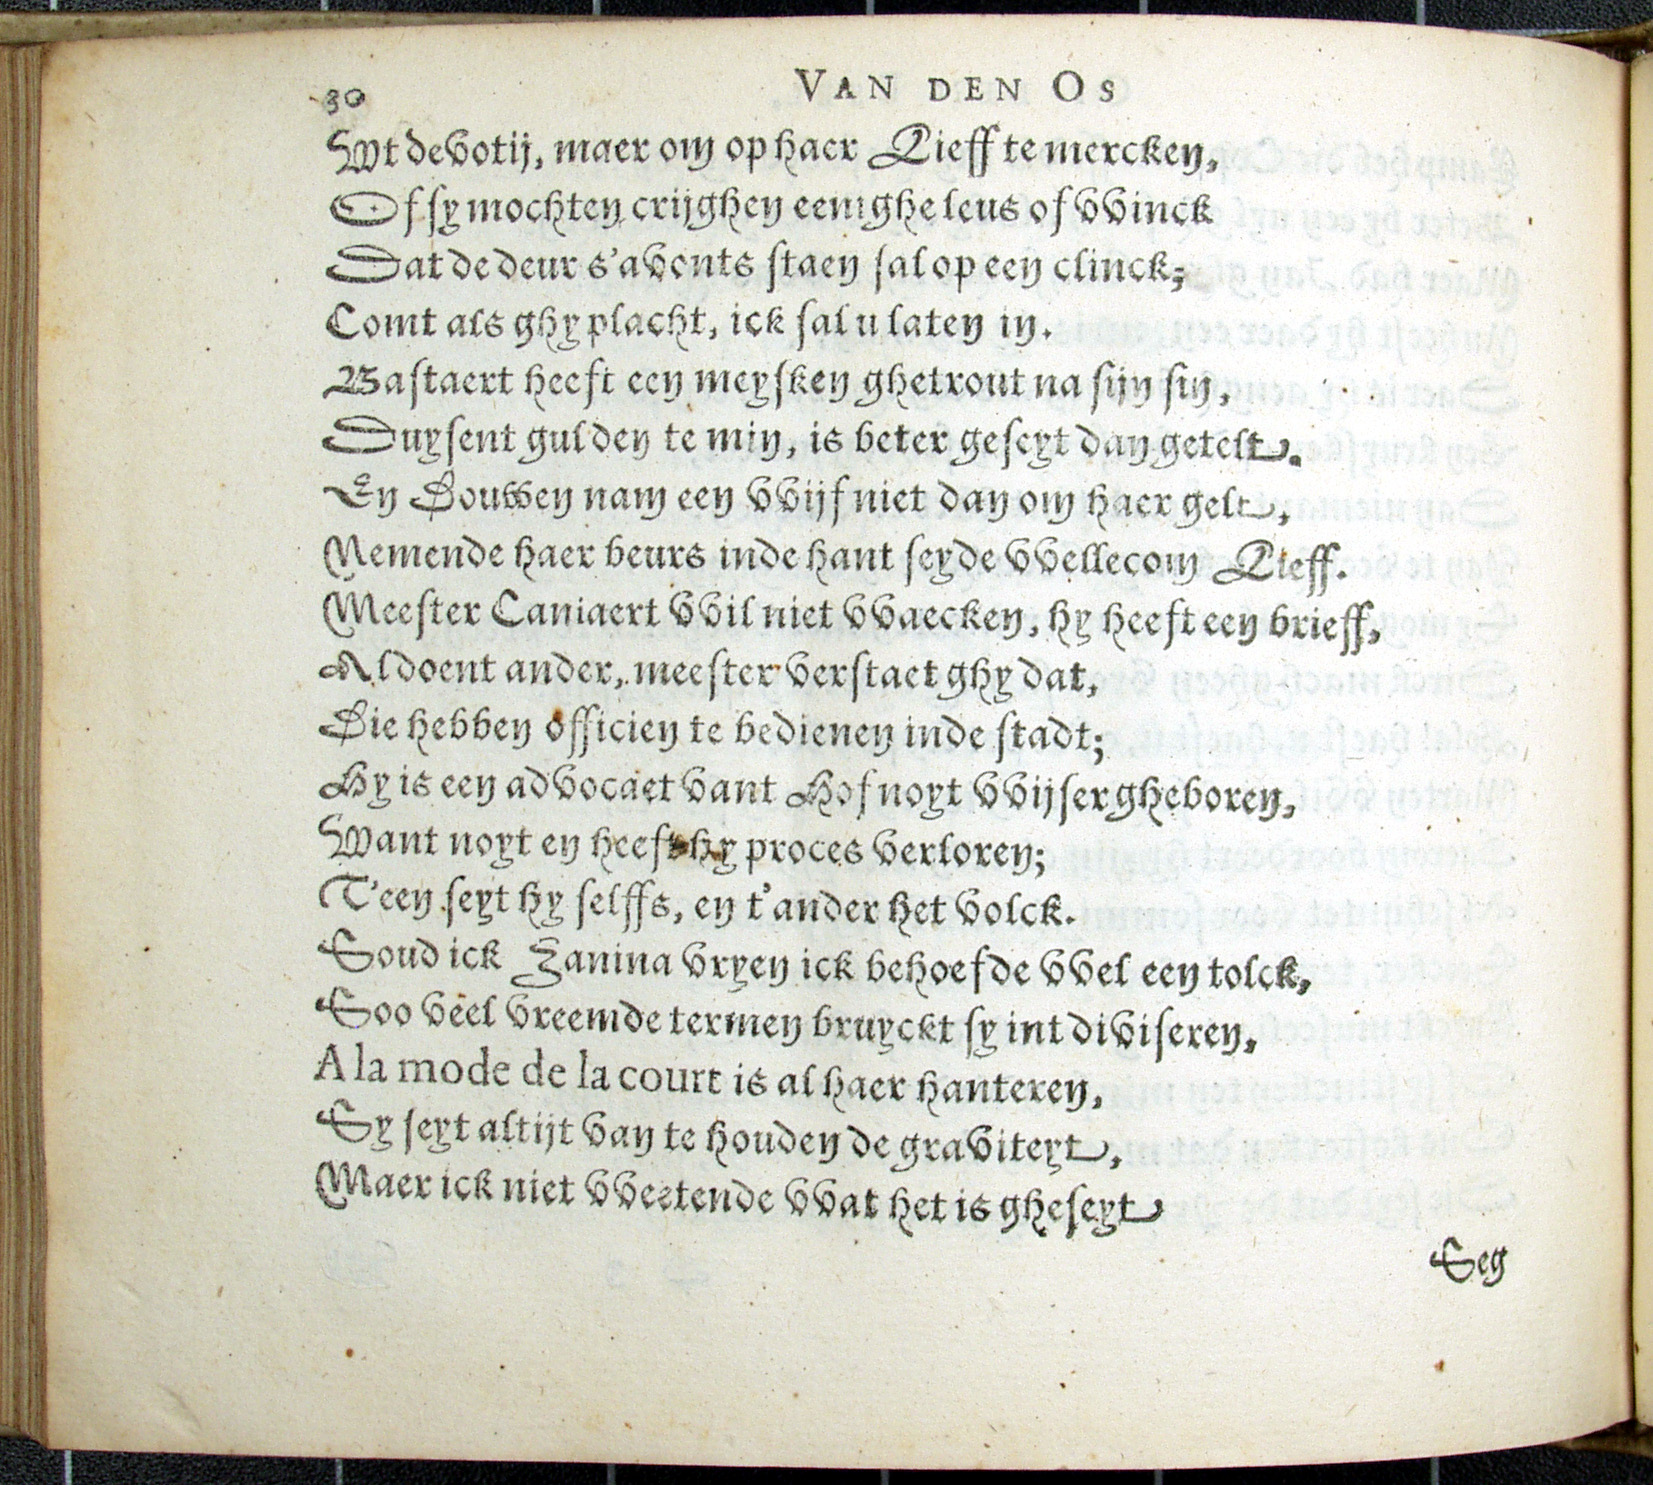 30
VAN DEN OS
Wt devotij, maer om op haer Lieff te mercken,
Of sy mochten crijghen eenighe leus of vvinck
Dat de deur s'avonts staen sal op een clinck;
Comt als ghy placht, ick sal u laten in.
Bastaert heeft een meysken ghetrout na sijn sin,
Duysent gulden te min, is beter geseyt dan getelt.
En Bouwen nam een vvijf niet dan om haer gelt,
Nemende haer beurs inde hant seyde vvellecom Lieff.
Meester Caniaert vvil niet vvaecken, hy heeft een brieff,
Al doent ander, meester verstaet ghy dat,
Die hebben officien te bedienen inde stadt;
Hy is een advocaet vant Hof noyt vvijser gheboren,
Want noyt en heeft hy proces verloren;
T'een seyt hy selffs, en t'ander het volck.
Soud ick Zanina vryen ick behoefde vvel een tolck,
Soo veel vreemde termen bruyckt sy int diviseren,
A la mode de la court is al haer hanteren,
Sy seyt altijt van te houden de graviteyt,
Maer ick niet vveetende vvat het is gheseyt
Seg